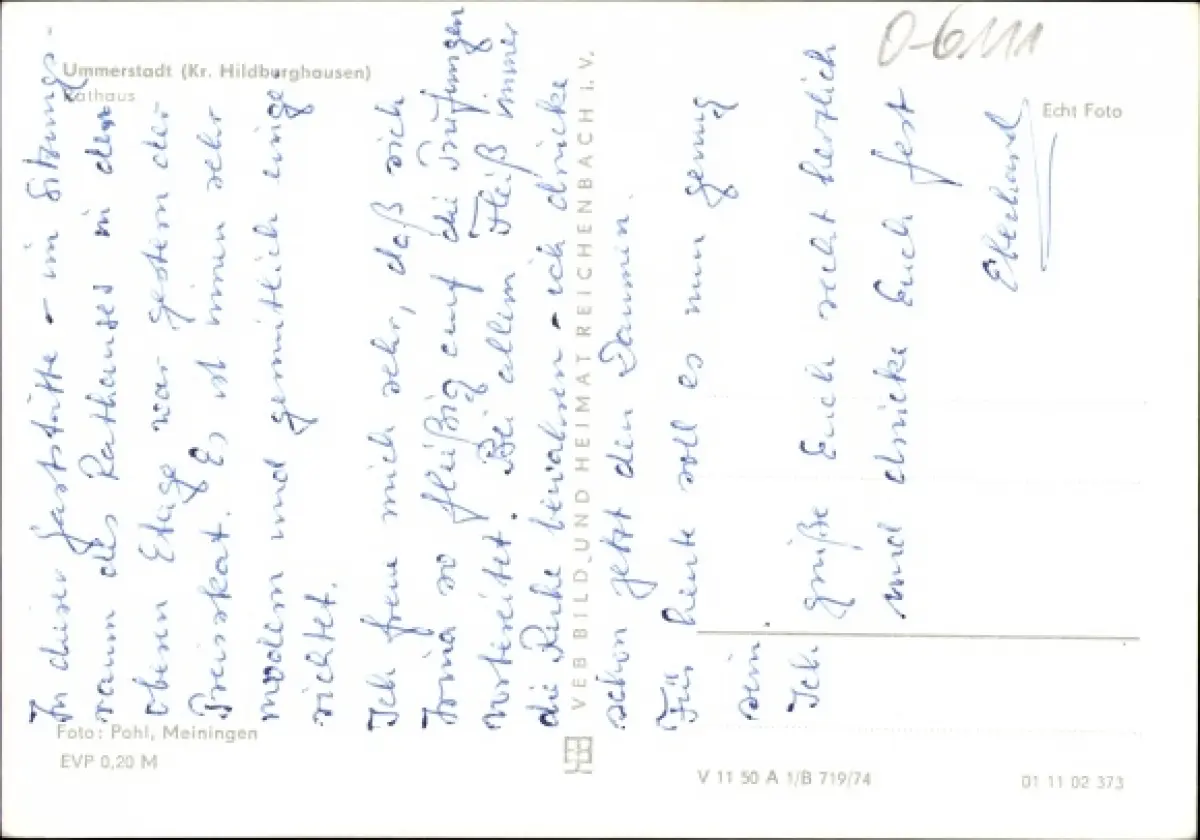 Ummerstadt (Kr. Hildburghausen)
Rathaus
Echt Foto
O-6111
In dieser Gaststätte - im Sitzungs-
raum des Rathauses in der
oberen Etage war gestern der
Preisskat. Es ist innen sehr
modern und gemütlich einge
richtet.
Ich freue mich sehr, daß sich
so fleißig auf die Prüfungen
vorbereitet. Bei allem Fleiß immer
die Ruhe bewahren - ich drücke
schon jetzt den Daumen.
Für heute soll es nun genug
sein.
Ich grüße Euch recht herzlich
und drücke Euch fest
Eberhard
VEB BILD UND HEIMAT REICHENBACH i. V.
Foto: Pohl, Meiningen
EVP 0,20 M
V 11 50 A 1/B 719/74
01 11 02 373